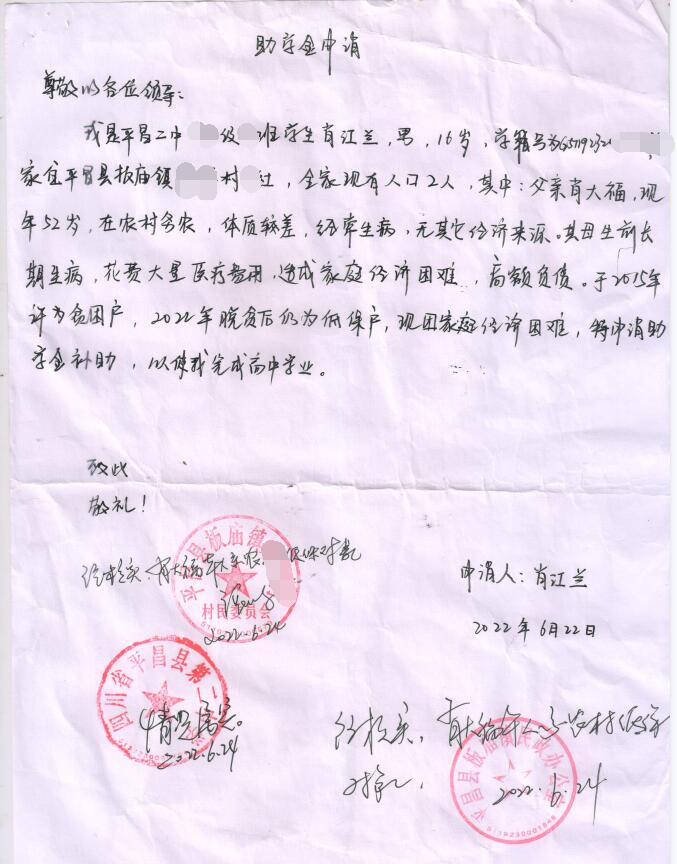 助学金申请
尊敬的各位领导:
我是平昌二中 级 班学生肖江兰,男,16岁,学籍号为G511923
家住平昌县板庙镇 村 社,全家现有人口2人,其中:父亲肖大福,现
年52岁,在农村务农,体质较差,经常生病,无其它经济来源。其母生前长
期生病,花费大量医疗费用,造成家庭经济困难,高额负债。于2015年
评为贫困户,2022年脱贫后仍为低保户,现因家庭经济困难,特申请助
学金补助,以使我完成高中学业。
致此
敬礼!
平昌县板庙镇
经核实,肖大福 对象
村民委员会
2022.6.24
申请人:肖江兰
2022年6月22日
四川省平昌县第二
情况属实。
2022.6.24
经核实,肖大福 农村低保
对象。
平昌县板庙镇民政办公室
2022.6.24
5119230001848